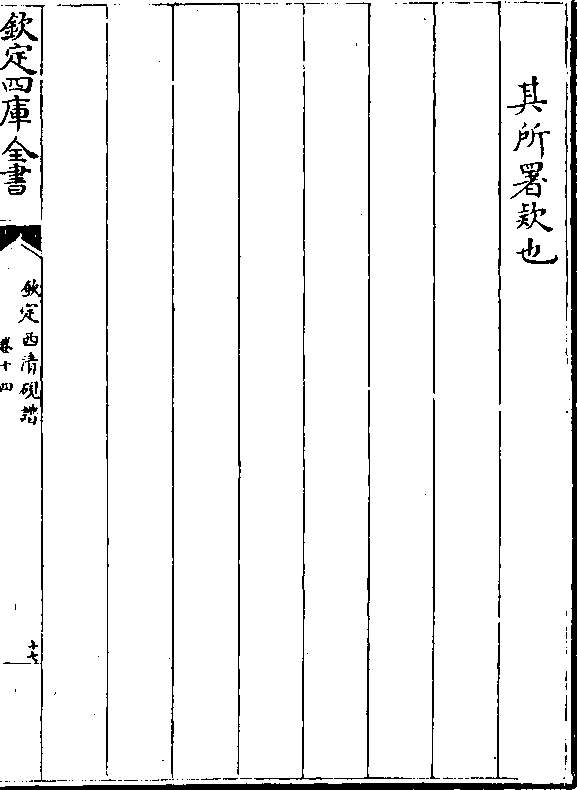 其所署欵也
欽定四庫全書
欽定西清硯譜
卷十四
十七